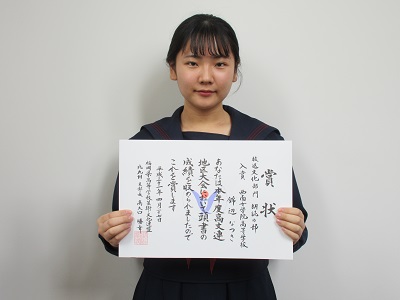 賞状
放送文化部門 朗読の部
入賞 西南女学院高等学校
錦辺 なつき
あなたは本年度高文連
地区大会において頭書の
成績を収められましたので
これを賞します
平成三十一年 四月二十七日
福岡県高等学校芸術・文化連盟